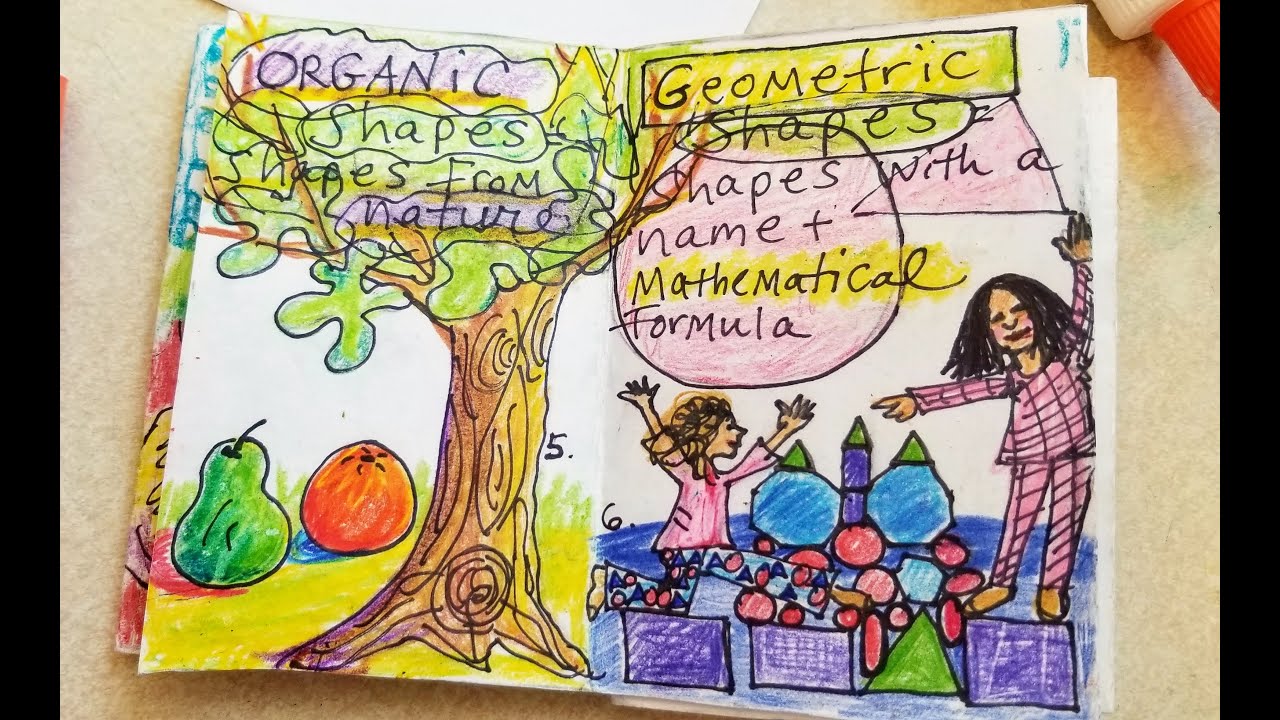 ORGANiC
Shapes =
Shapes from
nature
5.
Geometric
Shapes =
Shapes with a
name +
Mathematical
formula
6.